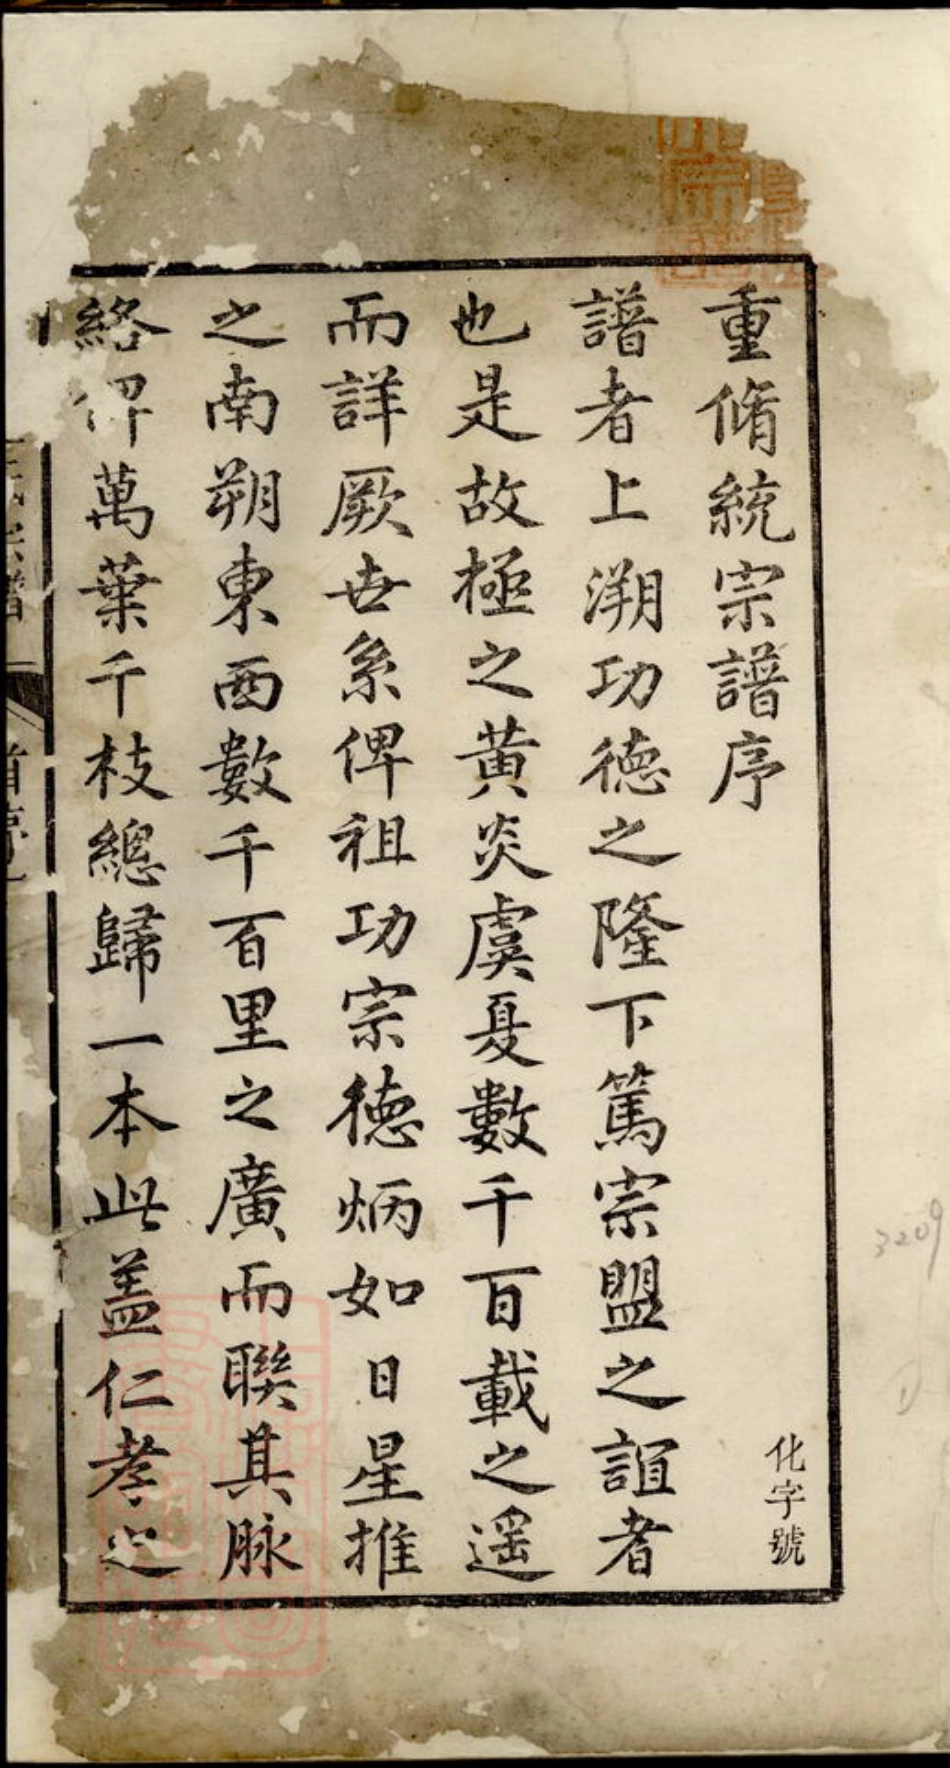 重脩統宗譜序
化字號
譜者上溯功德之隆下篤宗盟之誼者
也是故極之黃炎虞夏數千百載之遥
而詳厥世系俾祖功宗德炳如日星推
之南朔東西數千百里之廣而聯其脉
絡俾萬葉千枝總歸一本此盖仁孝之
3209